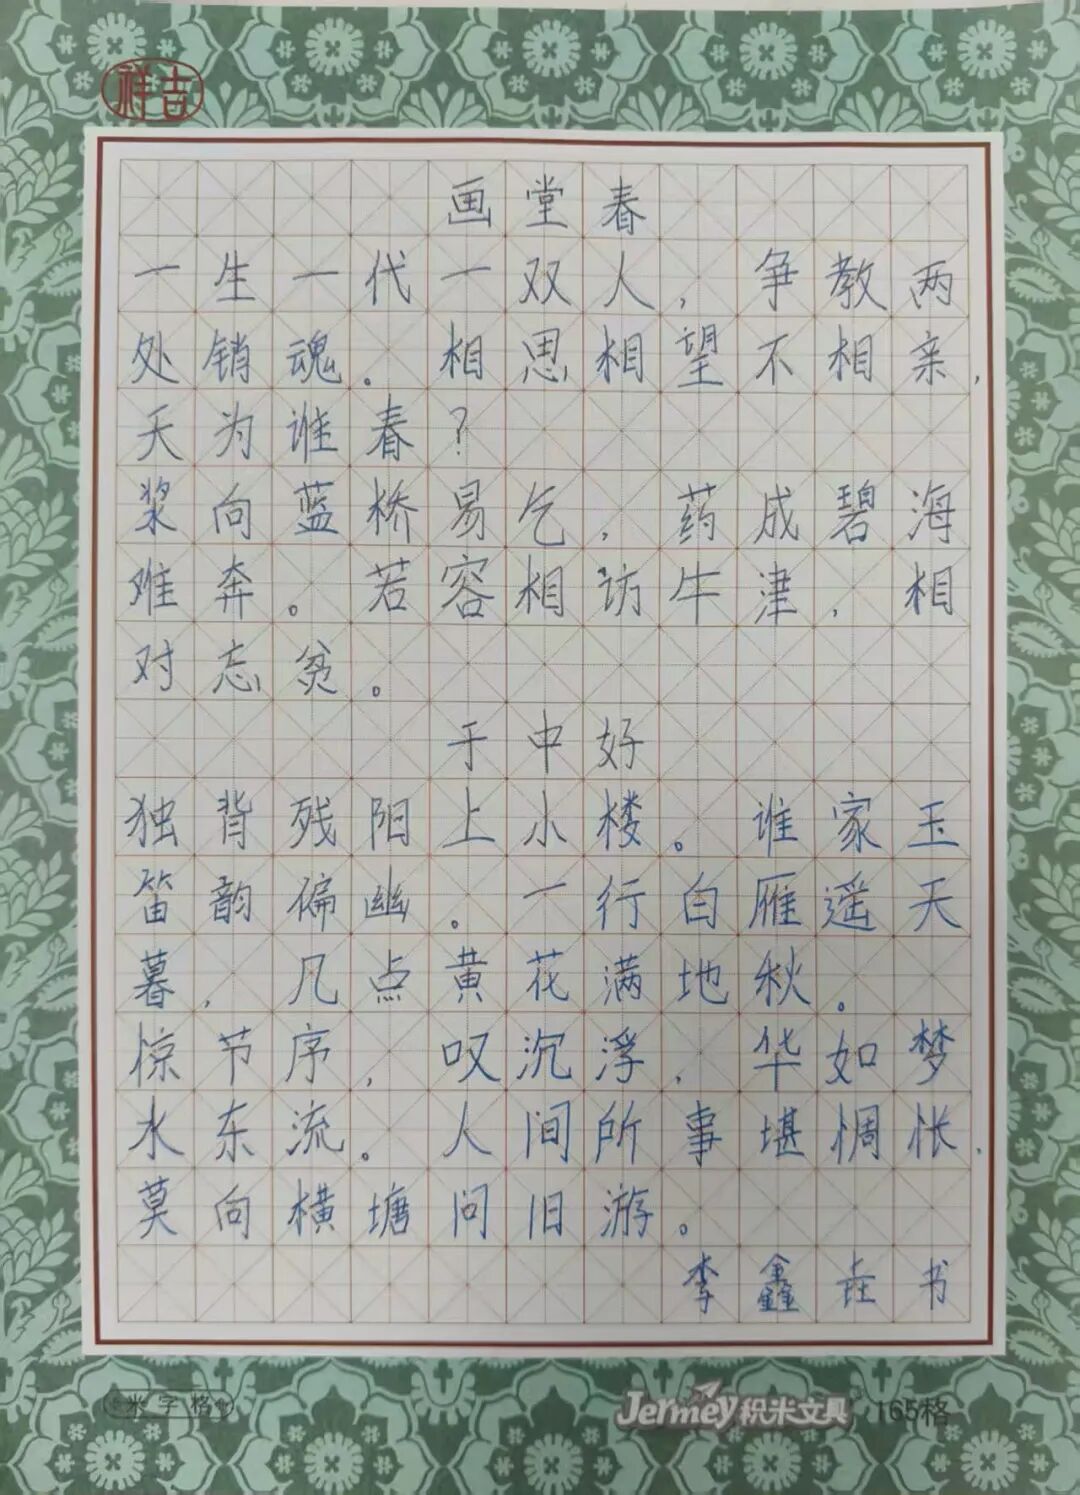 祥吉
画堂春
一生一代一双人，争教两
处销魂。相思相望不相亲，
天为谁春？
浆向蓝桥易乞，药成碧海
难奔。若容相访牛津，相
对忘贫。
于中好
独背残阳上小楼。谁家玉
笛韵偏幽。一行白雁遥天
暮，几点黄花满地秋。
惊节序，叹沉浮，华如梦
水东流。人间所事堪惆怅，
莫向横塘问旧游。
李鑫垚书
米字格
Jermey积米文具 165格